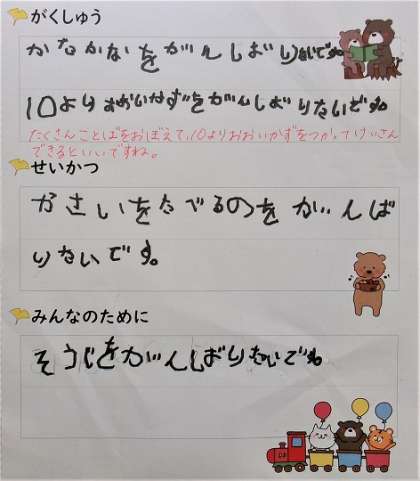 がくしゅう
かたかなをがんばりたいです。
10よりおおいかずをがんばりたいです。
たくさんことばをおぼえて、10よりおおいかずをつかってけいさん
できるといいですね。
せいかつ
やさいをたべるのをがんば
りたいです。
みんなのために
そうじをがんばりたいです。